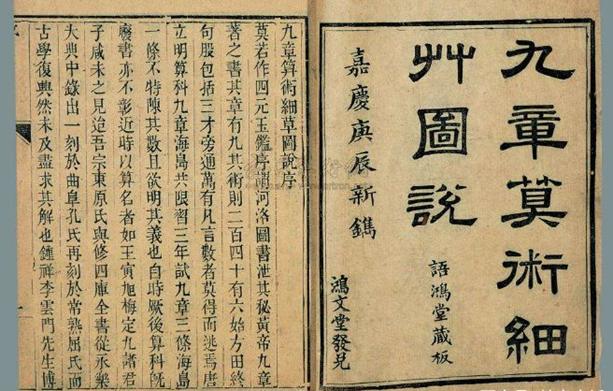 九章筭術細
艸圖說
嘉慶庚辰新鐫
語鴻堂藏板
鴻文堂發兌
九章筭術細草圖說序
莫若作四元玉鑑序謂河洛圖書泄其秘黃帝九章
著之書其章有九其術則二百四十有六始方田終
句股包括三才旁通萬有凡言數者莫得而逃焉唐
立明算科九章海島共限習三年試九章三條海島
一條不特陳其數且欲明其義也自時厥後算科旣
廢書亦不彰近時以算名者如王寅旭梅定九諸君
子咸未之見迨吾宗東原氏與修四庫全書從永樂
大典中錄出一刻於曲阜孔氏再刻於常熟屈氏而
古學復興然未及盡求其解也鍾祥李雲門先生博